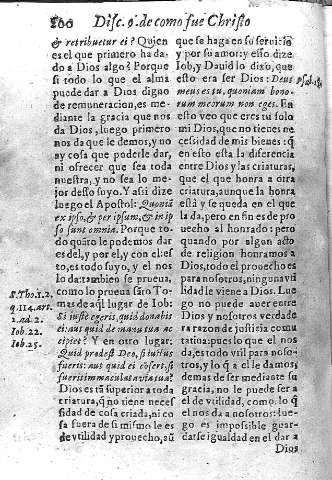 800 Disc. 9. de como fue Christo
& retribuetur ei? Quien
es el que primero ha da-
do a Dios algo? Porque
si todo lo que el alma
puede dar a Dios digno
de remuneracion, es me-
diante la gracia que nos
da Dios, luego primero
nos da que le demos, y no
ay cosa que poderle dar,
ni ofrecer que sea toda
nuestra, y no sea lo me-
jor desso suyo. Y assi dize
luego el Apostol: Quoniã
ex ipso, & per ipsum, & in ip
so sunt omnia. Porque to-
do quãto le podemos dar
es del, y por el, y con el: es
to, es todo suyo, y el nos
lo da: tambien se prueua,
como lo prueua Sãto To-
mas de aq̃l lugar de Iob:
Si iuste egeris, quid donabis
ei: aut quid de manu tua ac
cipiet? Y en otro lugar:
Quid prodest Deo, si iustus
fueris: aut quid ei cõfert, si
fuerit immaculata via tua?
Dios es tã superior a toda
criatura, q̃ no tiene neces
sidad de cosa criada, ni co
sa fuera de si mismo le es
de vtilidad y prouecho, aũ
S. Tho. 1. 2.
q. 114. art.
1. ad. 2.
Iob. 22.
Iob. 25.
que se haga en su seruicio
y por su amor: y esso dize
Iob, y Dauid lo dixo, que
esto era ser Dios: Deus
meus es tu, quoniam bono-
rum meorum non eges. En
esto veo que eres tu solo
mi Dios, que no tienes ne
cessidad de mis bienes: q̃
en esto esta la diferencia
entre Dios y las criaturas,
que el que honra a otra
criatura, aunque la honra
està y se queda en el que
la da, pero en fin es de pro
uecho al honrado: pero
quando por algun acto
de religion honramos a
Dios, todo el prouecho es
para nosotros, ninguna vti
lidad le viene a Dios. Lue
go no puede auer entre
Dios y nosotros verdade
ra razon de justicia comu
tatiua: pues lo que el nos
da, es todo vtil para noso-
tros, y lo q̃ a el le damos,
demas de ser mediante su
gracia, no le puede ser a
el de vtilidad, como lo q̃
el nos da a nosotros: lue-
go es impossible guar-
darse igualdad en el dar a
Dios